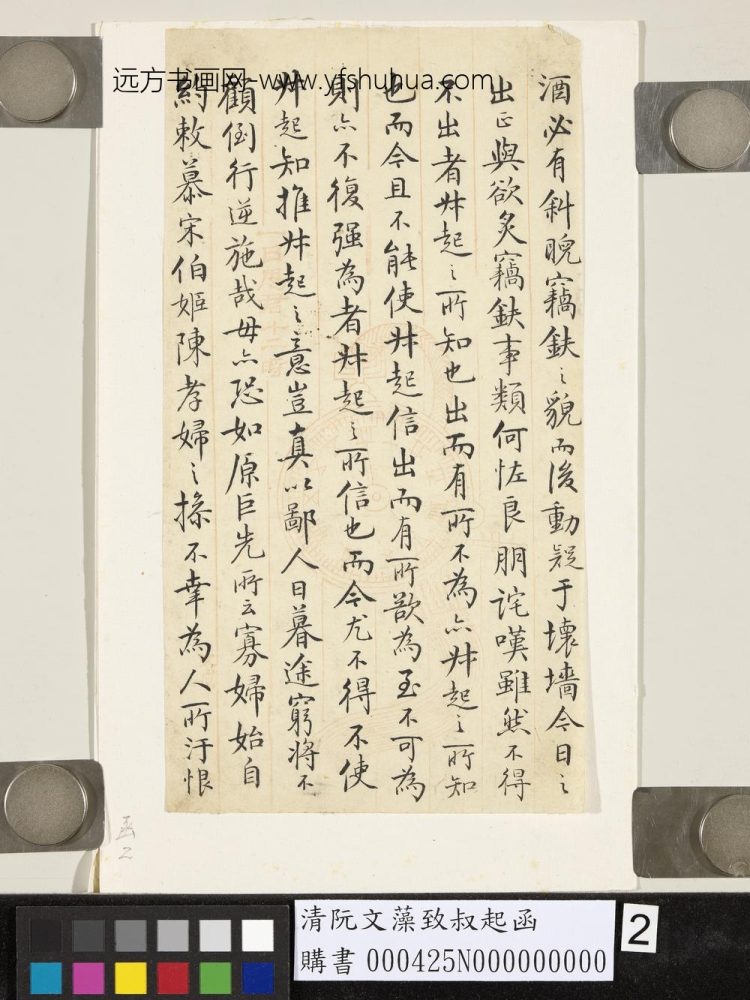 远方书画网-www.yfshuhua.com
酒必有斜睨竊鈇之貌而後動疑于壞墻今日之
出正與欲炙竊鈇事類何怪良朋詫嘆雖然不得
不出者叔起之所知也出而有所不為亦叔起之所知
也而今且不能使叔起信出而有所欲為至不可為
則亦不復强為者叔起之所信也而今尤不得不使
叔起知推叔起之意豈真以鄙人日暮途窮將不
顧倒行逆施哉毋亦恐如原巨先所云寡婦始自
約敕慕宋伯姬陳孝婦之操不幸為人所汙恨
函2
清阮文藻致叔起函
購書 000425N000000000
2